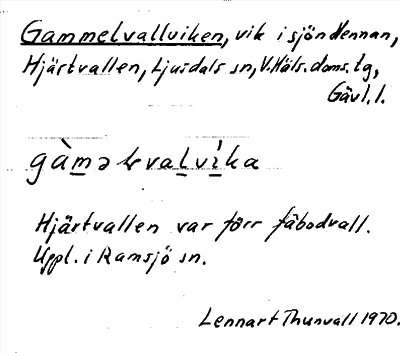 Gammelvallviken, vik i sjön Hennan,
Hjärtvallen, Ljusdals sn, V.Häls.doms.lg,
Gävl.l.
Hjärtvallen var förr fäbodvall.
Uppl. i Ramsjö sn.
Lennart Thunvall 1970.